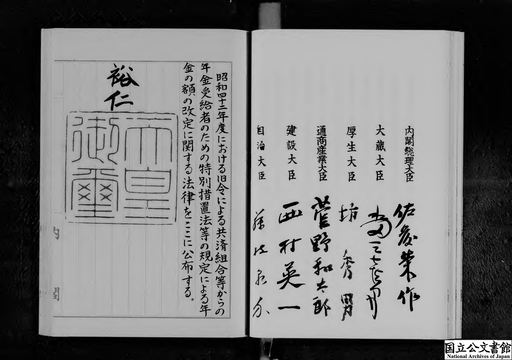 内閣総理大臣 佐藤榮作
大蔵大臣 水田三喜男
厚生大臣 坊秀男
通商産業大臣 菅野和太郎
建設大臣 西村英一
自治大臣 藤枝泉介
昭和四十二年度における旧令による共済組合等からの
年金受給者のための特別措置法等の規定による年
金の額の改定に関する法律をここに公布する。
裕仁
天皇御璽
内閣
国立公文書館
National Archives of Japan